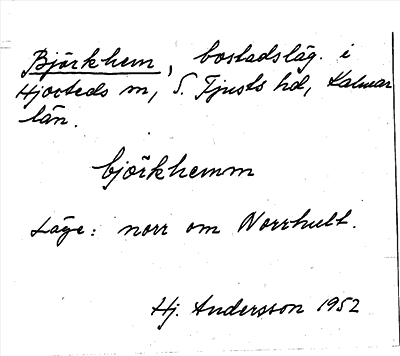 Björkhem, bostadsläg. i
Hjorteds sn, S. Tjusts hd, Kalmar
län.
björkhemm
Läge: norr om Norrhult.
Hj. Andersson 1952